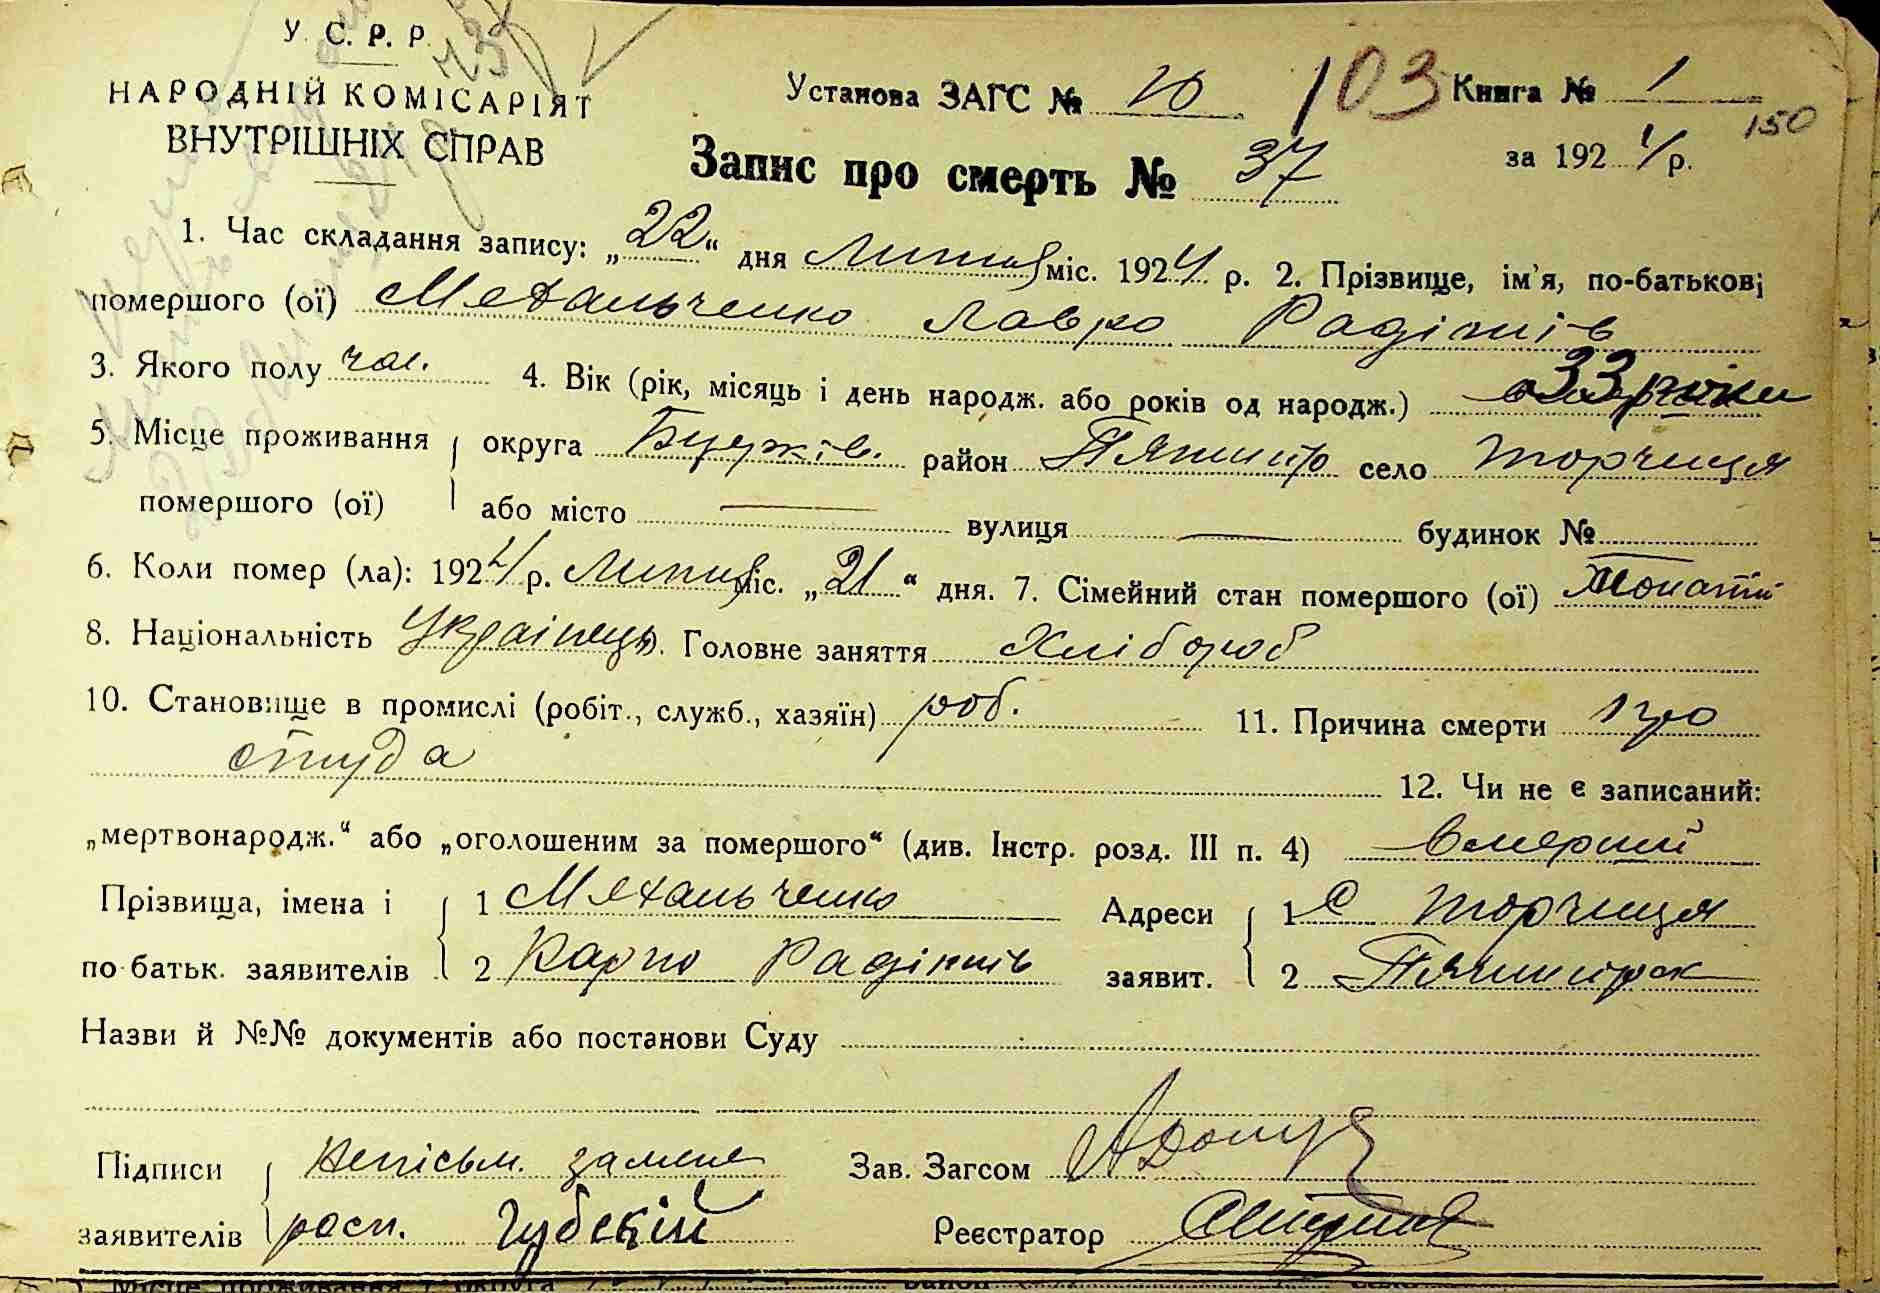 У. С. Р. Р.
НАРОДНІЙ КОМІСАРІЯТ
ВНУТРІШНІХ СПРАВ
Установа ЗАГС № 10 103 Книга № 1
150
Запис про смерть № 37 за 1924 р.
1. Час складання запису: „22“ дня Липня міс. 1924 р. 2. Прізвище, ім'я, по-батькові
помершого (ої) Михальченко Лавро Радіонів
3. Якого полу чол. 4. Вік (рік, місяць і день народж. або років од народж.) 33 роки
5. Місце проживання округа район село Торчиця
помершого (ої) або місто — вулиця — будинок №
6. Коли помер (ла): 1924 р. Липня міс. „21“ дня. 7. Сімейний стан помершого (ої) Жонатій
8. Національність Українець 9. Головне заняття Хлібороб
10. Становище в промислі (робіт., служб., хазяїн) роб. 11. Причина смерти про
студа 12. Чи не є записаний:
„мертвонародж.“ або „оголошеним за помершого“ (див. Інстр. розд. III п. 4) вмерший
Прізвища, імена і 1 Михальченко Адреси 1 С Торчиця
по батьк. заявителів 2 Карпо Радіонів заявит. 2
Назви й №№ документів або постанови Суду
Підписи Непісьм. за мене Зав. Загсом
заявителів росп. Губскій Реєстратор